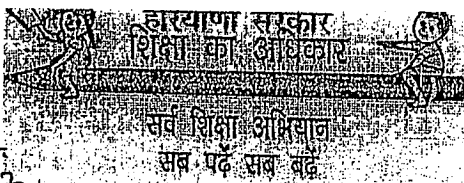 हरियाणा सरकार
शिक्षा का अधिकार
सर्व शिक्षा अभियान
सब पढ़ें सब बढ़ें